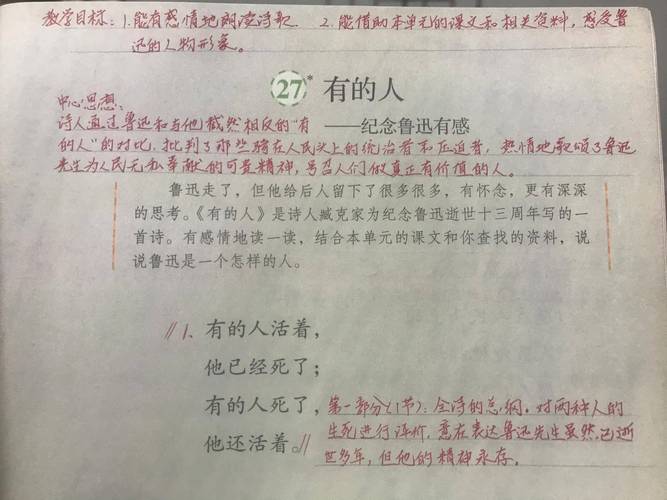 教学目标：1.能有感情地朗读诗歌. 2.能借助本单元的课文和相关资料，感受鲁
迅的人物形象。
27* 有的人
中心思想：
——纪念鲁迅有感
诗人通过鲁迅和与他截然相反的"有
的人"的对比，批判了那些骑在人民头上的统治者和压迫者，热情地歌颂了鲁迅
先生为人民无私奉献的可贵精神，号召人们做真正有价值的人。
鲁迅走了，但他给后人留下了很多很多，有怀念，更有深深
的思考。《有的人》是诗人臧克家为纪念鲁迅逝世十三周年写的一
首诗。有感情地读一读，结合本单元的课文和你查找的资料，说
说鲁迅是一个怎样的人。
//1、有的人活着，
他已经死了；
有的人死了，
他还活着。//
第一部分(1节)：全诗的总纲。对两种人的
生死进行评价，意在表达鲁迅先生虽然已逝
世多年，但他的精神永存。